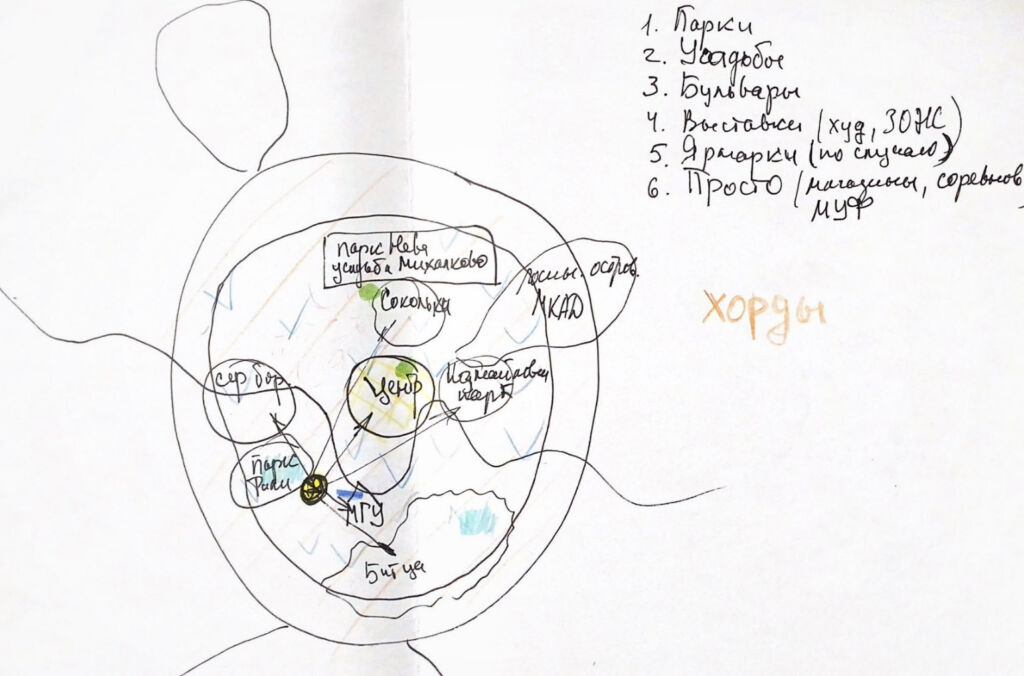 1. Парки
2. Усадьбы
3. Бульвары
4. Выставки (худ, ЗОЖ)
5. Ярмарки (по случаю)
6. Просто (магазины, соревнов,
МУФ
парк Нева
усадьба Михалково
Сокольки
остров.
МКАД
хорды
сер бор.
Центр
Измайловск
парк
Парк
Фили
МГУ
Битца